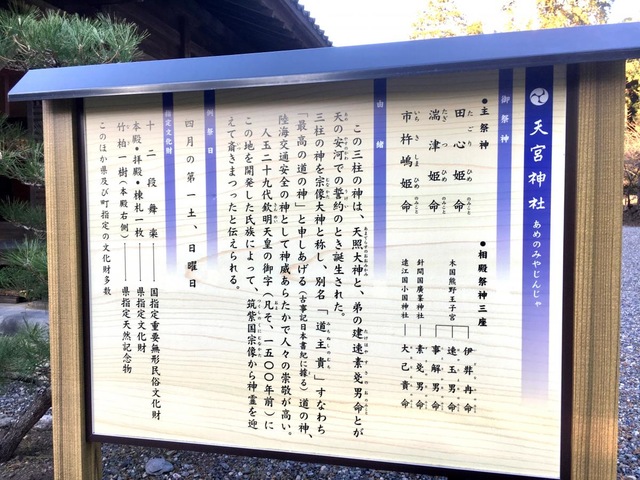 天宮神社 あめのみやじんじゃ
御祭神
●主祭神
田心姫命
たごりひめのみこと
湍津姫命
たぎつひめのみこと
市杵嶋姫命
いちきしまひめのみこと
●相殿祭神三座
本国熊野王子宮
伊弉冉命
速玉男命
事解男命
針間国廣峯神社 素戔男命
遠江国小国神社 大己貴命
由緒
この三柱の神は、天照大神と、弟の建速素戔男命とが
天の安河での誓約のとき誕生された。
三柱の神を宗像大神と称し、別名「道主貴」すなわち
「最高の道の神」と申しあげる(古事記日本書紀に據る)道の神、
陸海交通安全の神として神威あらたかで人々の崇敬が高い。
人玉二十九代欽明天皇の御字(凡そ、一五〇〇年前)に
この地を開発した氏族によって、筑紫国宗像から神霊を迎
えて斎きまつったと伝えられる。
例祭日
四月の第一土、日曜日
指定文化財
十二段舞楽――国指定重要無形民俗文化財
本殿・拝殿・棟札一枚――県指定文化財
竹柏一樹(本殿右側)――県指定天然記念物
このほか県及び町指定の文化財多数